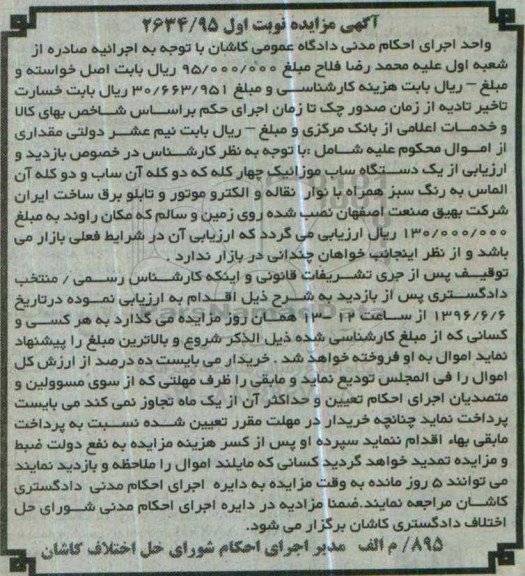 آگهی مزایده نوبت اول ۲۶۳۴/۹۵
واحد اجرای احکام مدنی دادگاه عمومی کاشان با توجه به اجرائیه صادره از
شعبه اول علیه محمد رضا فلاح مبلغ ۹۵/۰۰۰/۰۰۰ ریال بابت اصل خواسته و
مبلغ – ریال بابت هزینه کارشناسی و مبلغ ۳۰/۶۶۳/۹۵۱ ریال بابت خسارت
تاخیر تادیه از زمان صدور چک تا زمان اجرای حکم براساس شاخص بهای کالا
و خدمات اعلامی از بانک مرکزی و مبلغ – ریال بابت نیم عشر دولتی مقداری
از اموال محکوم علیه شامل :با توجه به نظر کارشناس در خصوص بازدید و
ارزیابی از یک دستگاه ساب موزائیک چهار کله که دو کله آن ساب و دو کله آن
الماس به رنگ سبز همراه با نوار نقاله و الکترو موتور و تابلو برق ساخت ایران
شرکت بهیق صنعت اصفهان نصب شده روی زمین و سالم که مکان راوند به مبلغ
۱۳۰/۰۰۰/۰۰۰ ریال ارزیابی می گردد که ارزیابی آن در شرایط فعلی بازار می
باشد و از نظر اینجانب خواهان چندانی در بازار ندارد .
توقیف پس از جری تشریفات قانونی و اینکه کارشناس رسمی / منتخب
دادگستری پس از بازدید به شرح ذیل اقدام به ارزیابی نموده درتاریخ
۱۳۹۶/۶/۶ از ساعت ۱۲-۱۳ همان روز مزایده می گذارد به هر کسی و
کسانی که از مبلغ کارشناسی شده ذیل الذکر شروع و بالاترین مبلغ را پیشنهاد
نماید اموال به او فروخته خواهد شد . خریدار می بایست ده درصد از ارزش کل
اموال را فی المجلس تودیع نماید و مابقی را ظرف مهلتی که از سوی مسوولین و
متصدیان اجرای احکام تعیین و حداکثر آن از یک ماه تجاوز نمی کند می بایست
پرداخت نماید چنانچه خریدار در مهلت مقرر تعیین شده نسبت به پرداخت
مابقی بهاء اقدام ننماید سپرده او پس از کسر هزینه مزایده به نفع دولت ضبط
و مزایده تمدید خواهد گردید کسانی که مایلند اموال را ملاحظه و بازدید نمایند
می توانند ۵ روز مانده به وقت مزایده به دایره اجرای احکام مدنی دادگستری
کاشان مراجعه نمایند.ضمنا مزادیه در دایره اجرای احکام مدنی شورای حل
اختلاف دادگستری کاشان برگزار می شود.
۸۹۵/ م الف مدیر اجرای احکام شورای حل اختلاف کاشان